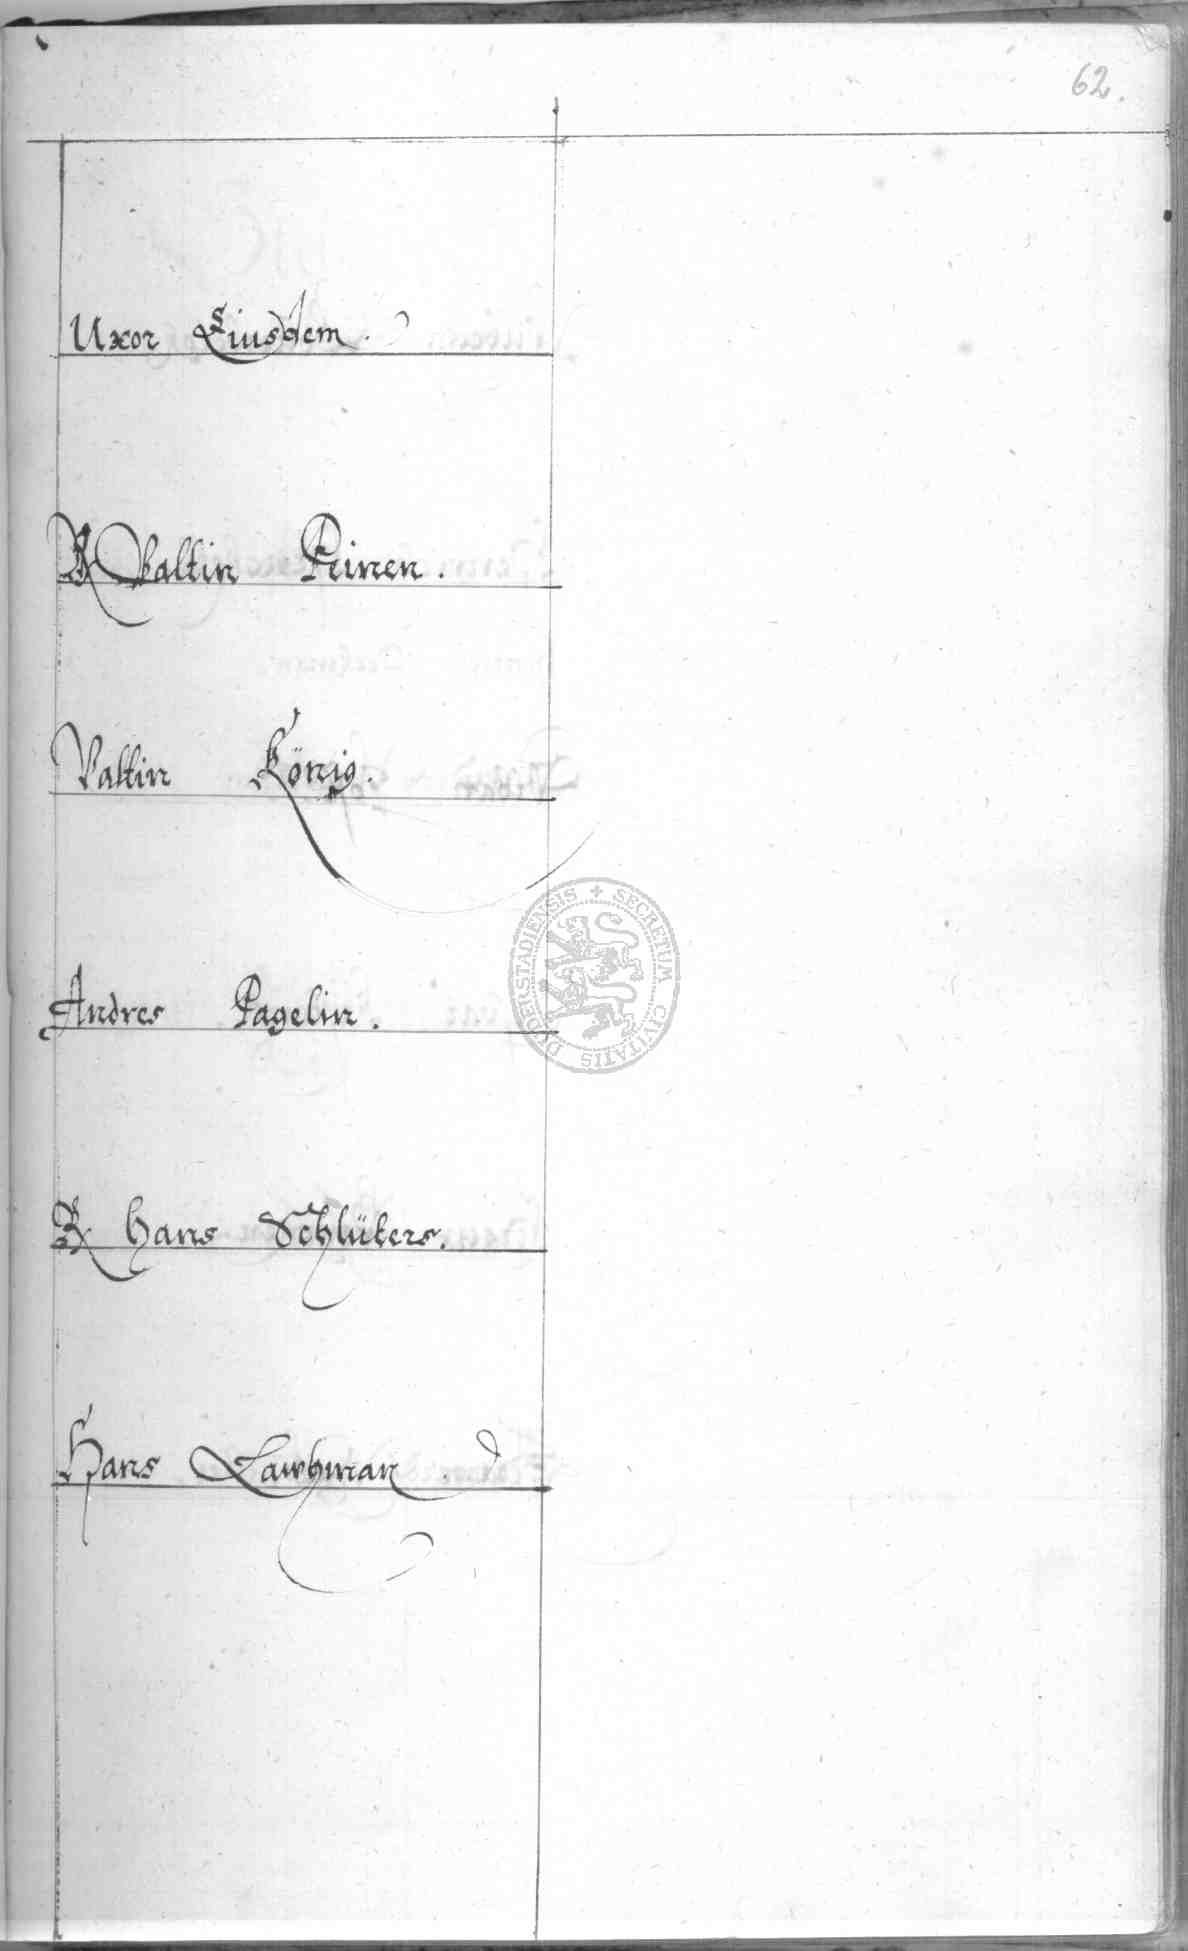 62.
Uxor Eiusdem.
R Valtin Peinen.
Valtin König.
Andres Pagelin.
R Hans Schlüters.
Hans Lawhman.
SECRETUM CIVITATIS DUDERSTADIENSIS